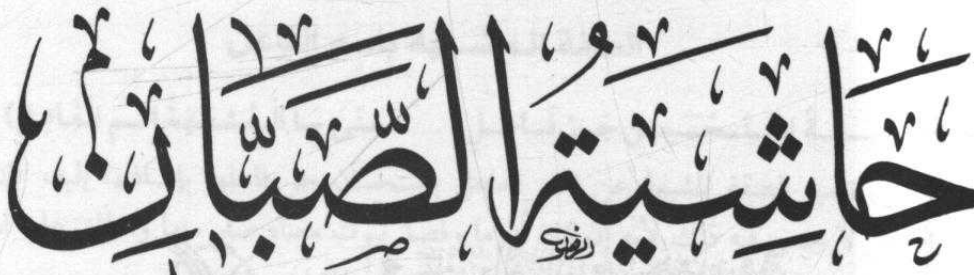 حَاشِيَةُ الصَّبَّانِ